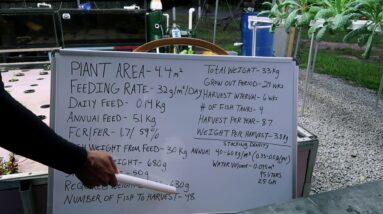 PLANT AREA - 4.4 m²
FEEDING RATE - 32 g/m²/DAY
DAILY FEED - 0.14 kg
ANNUAL FEED - 51 kg
FCR/FER - 1.7/ 59%
FISH WEIGHT FROM FEED - 30 kg
WEIGHT - 680 g
- 50
REQUIRED WEIGHT - 630 g
NUMBER OF FISH TO HARVEST - 48
TOTAL WEIGHT - 33 kg
GROW OUT PERIOD - 24 WKS
HARVEST INTERVAL - 6 WKS
# OF FISH TANKS - 4
HARVEST PER YEAR - 8.7
WEIGHT PER HARVEST - 3.8 kg
STOCKING DENSITY
ANNUAL 40-60 kg/m³
WATER VOLUME - 0.095 m³
95 LITERS
25 GAL